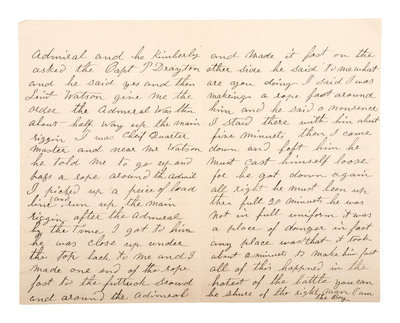 Admiral and he Kimberly
asked the Capt P Drayton
and he said yes and then
Leiut Watson give me the
order the Admiral was then
about half way up the main
riggin I was Chef Quarter
master and near Mr Watson
he told me to go up and
pass a rope around the Admil
I picked up a peice of lead
line (and run up the main
riggin after the Admiral
by the time I got to him
he was close up under
the top back to me and I
made one end of the rope
fast to the futtuck shroud
and around the Admiral
and made it fast on the
other side he said to me what
are you doing I said I was
making a rope fast around
him and he said o nonsence
I staid there with him about
five minuets then I came
down and left him he
must cast himself loose
for he got down again
all right he must been up
there full 20 minuets he was
not in full uniform it was
a place of danger in fact
any place was that it took
about 2 minuets to make him fast
all of this happned in the
hotest of the battle you can
be shure of the right man I am
the Boy